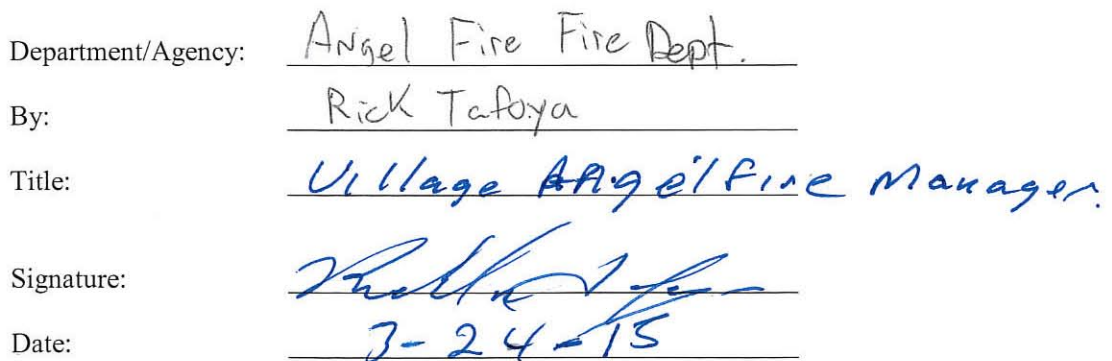 Department/Agency: Angel Fire Fire Dept.
By: Rick Tafoya
Title: Village Angel Fire Manager.
Signature:
Date: 3-24-15